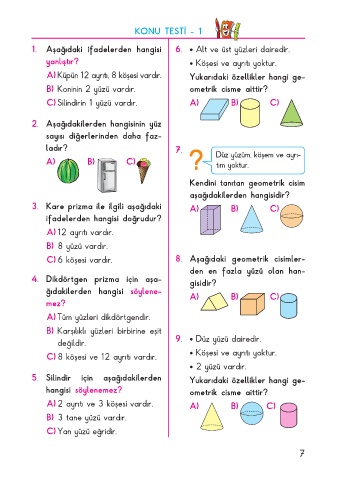 KONU TESTİ - 1
1. Aşağıdaki ifadelerden hangisi
yanlıştır?
A) Küpün 12 ayrıtı, 8 köşesi vardır.
B) Koninin 2 yüzü vardır.
C) Silindirin 1 yüzü vardır.
2. Aşağıdakilerden hangisinin yüz
sayısı diğerlerinden daha faz-
ladır?
A) B) C)
3. Kare prizma ile ilgili aşağıdaki
ifadelerden hangisi doğrudur?
A) 12 ayrıtı vardır.
B) 8 yüzü vardır.
C) 6 köşesi vardır.
4. Dikdörtgen prizma için aşa-
ğıdakilerden hangisi söylene-
mez?
A) Tüm yüzleri dikdörtgendir.
B) Karşılıklı yüzleri birbirine eşit
değildir.
C) 8 köşesi ve 12 ayrıtı vardır.
5. Silindir için aşağıdakilerden
hangisi söylenemez?
A) 2 ayrıtı ve 3 köşesi vardır.
B) 3 tane yüzü vardır.
C) Yan yüzü eğridir.
6. • Alt ve üst yüzleri dairedir.
• Köşesi ve ayrıtı yoktur.
Yukarıdaki özellikler hangi ge-
ometrik cisme aittir?
A) B) C)
7.
?
Düz yüzüm, köşem ve ayrı-
tım yoktur.
Kendini tanıtan geometrik cisim
aşağıdakilerden hangisidir?
A) B) C)
8. Aşağıdaki geometrik cisimler-
den en fazla yüzü olan han-
gisidir?
A) B) C)
9. • Düz yüzü dairedir.
• Köşesi ve ayrıtı yoktur.
• 2 yüzü vardır.
Yukarıdaki özellikler hangi ge-
ometrik cisme aittir?
A) B) C)
7